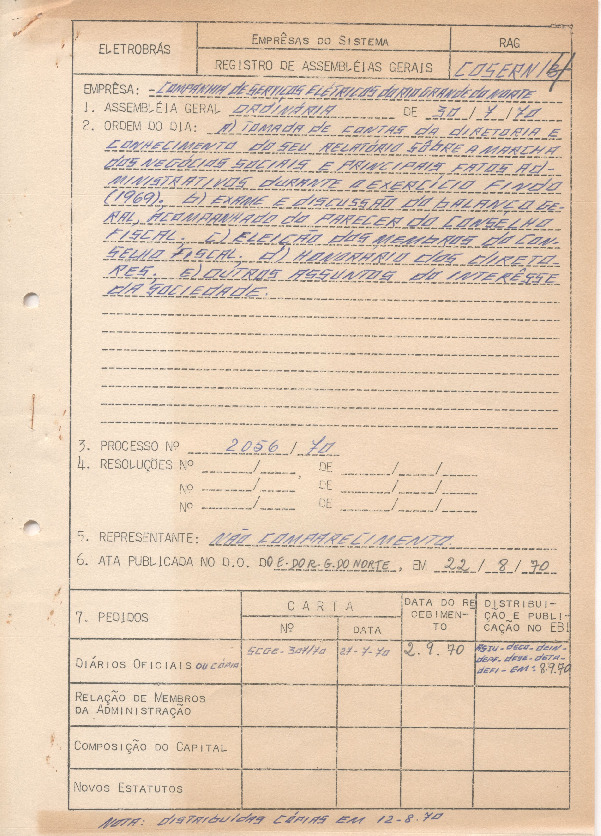 ELETROBRÁS
EMPRÊSAS DO SISTEMA
RAG
REGISTRO DE ASSEMBLÉIAS GERAIS
COSERN
EMPRÊSA: COMPANHIA DE SERVIÇOS ELÉTRICOS DO RIO GRANDE DO NORTE
1. ASSEMBLÉIA GERAL ORDINÁRIA DE 30 / 7 / 70
2. ORDEM DO DIA: A) TOMADA DE CONTAS DA DIRETORIA E
CONHECIMENTO DO SEU RELATÓRIO SÔBRE A MARCHA
DOS NEGÓCIOS SOCIAIS E PRINCIPAIS FATOS AD-
MINISTRATIVOS DURANTE O EXERCÍCIO FINDO
(1969). b) EXAME E DISCUSSÃO DO BALANÇO GE-
RAL ACOMPANHADO DO PARECER DO CONSELHO
FISCAL. c) ELEIÇÃO DOS MEMBROS DO CON-
SELHO FISCAL. d) HONORÁRIO DOS DIRETO
RES. E) OUTROS ASSUNTOS DO INTERÊSSE
DA SOCIEDADE.
3. PROCESSO Nº 2056 / 70
4. RESOLUÇÕES Nº / , DE / /
Nº / DE / /
Nº / DE / /
5. REPRESENTANTE: NÃO COMPARECIMENTO.
6. ATA PUBLICADA NO D.O. DO E. DO R. G. DO NORTE, EM 22 / 8 / 70
7. PEDIDOS
CARTA
Nº
DATA
DATA DO RE
CEBIMEN-
TO
DISTRIBUI-
ÇÃO E PUBLI-
CAÇÃO NO EBI
DIÁRIOS OFICIAIS OU CÓPIA
GCGE-307/70
27-7-70
2.9.70
EM: 8.9.70
RELAÇÃO DE MEMBROS
DA ADMINISTRAÇÃO
COMPOSIÇÃO DO CAPITAL
NOVOS ESTATUTOS
NOTA: DISTRIBUÍDAS CÓPIAS EM 12-8-70